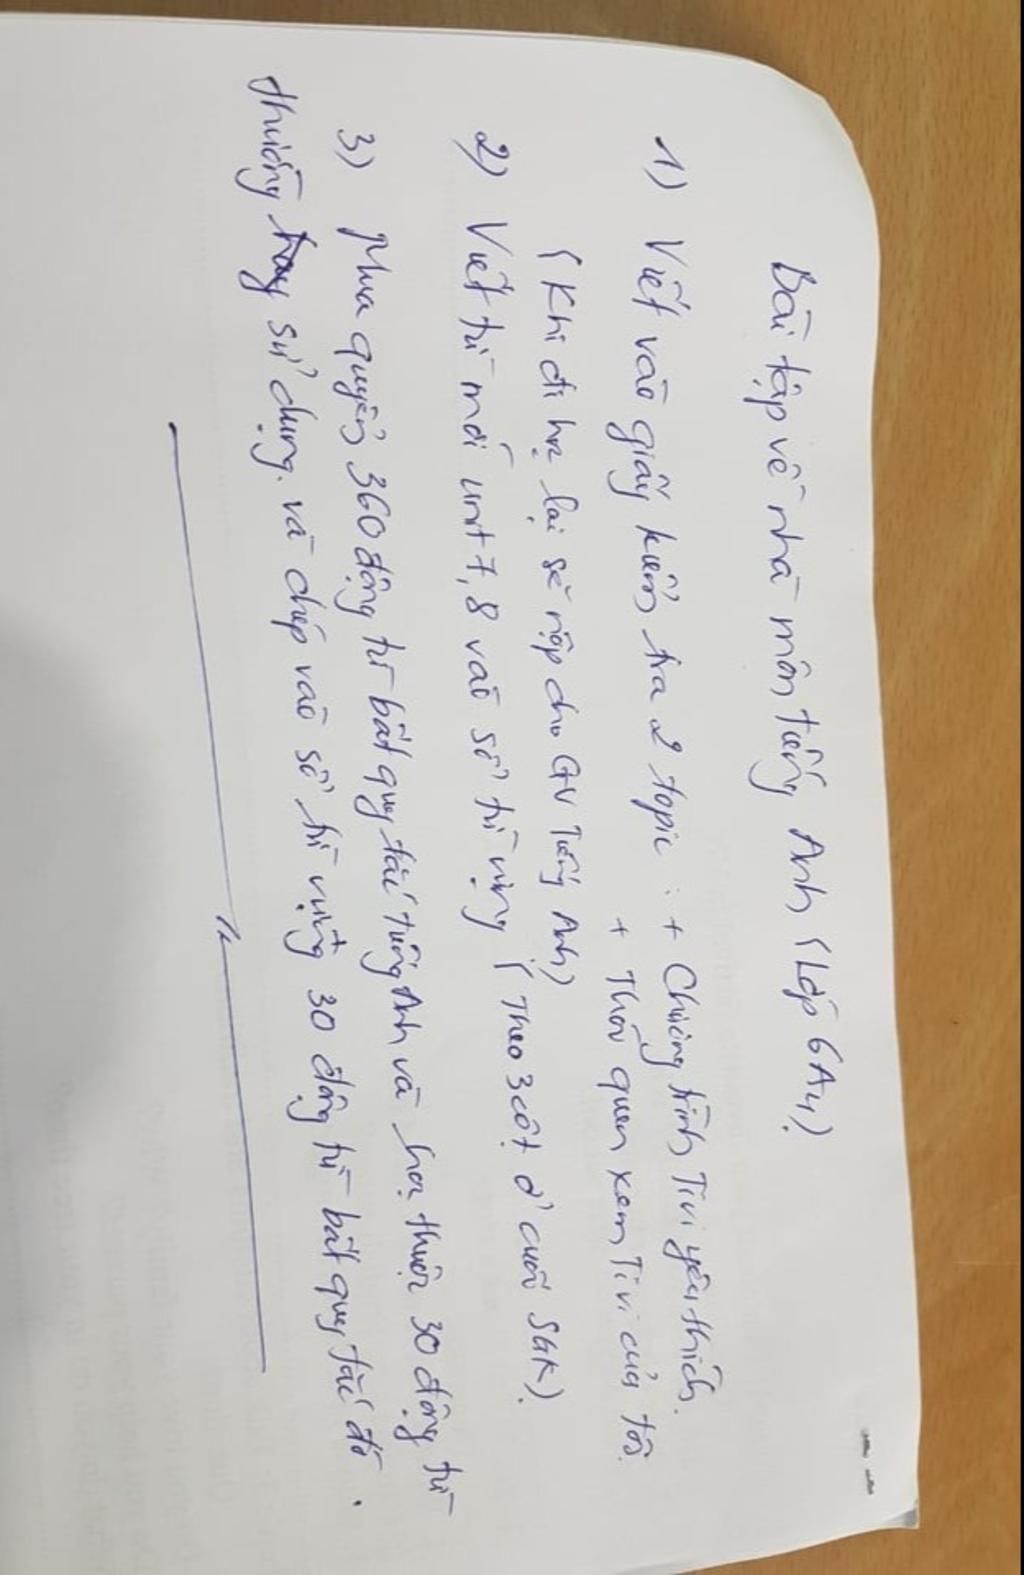 Bài tập về nhà môn tiếng Anh (Lớp 6A4).
1) Viết vào giấy kiểm tra 2 topic : + Chương trình Tivi yêu thích.
+ Thói quen xem Tivi của tôi.
(Khi đi học lại sẽ nộp cho GV Tiếng Anh)
2) Viết từ mới unit 7, 8 vào sổ từ vựng (Theo 3 cột ở cuối SGK).
3) Mua quyển 360 động từ bất quy tắc tiếng Anh và học thuộc 30 động từ
thường hay sử dụng. và chép vào sổ từ vựng 30 động từ bất quy tắc đó.